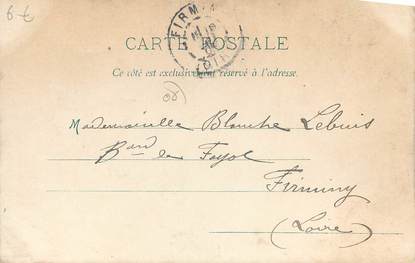 6-€
FIRMINY
CARTE POSTALE
Ce côté est exclusivement réservé à l'adresse.
Mademoiselle Blanche Lebuis
B^ard de Fayol
Firminy
(Loire)